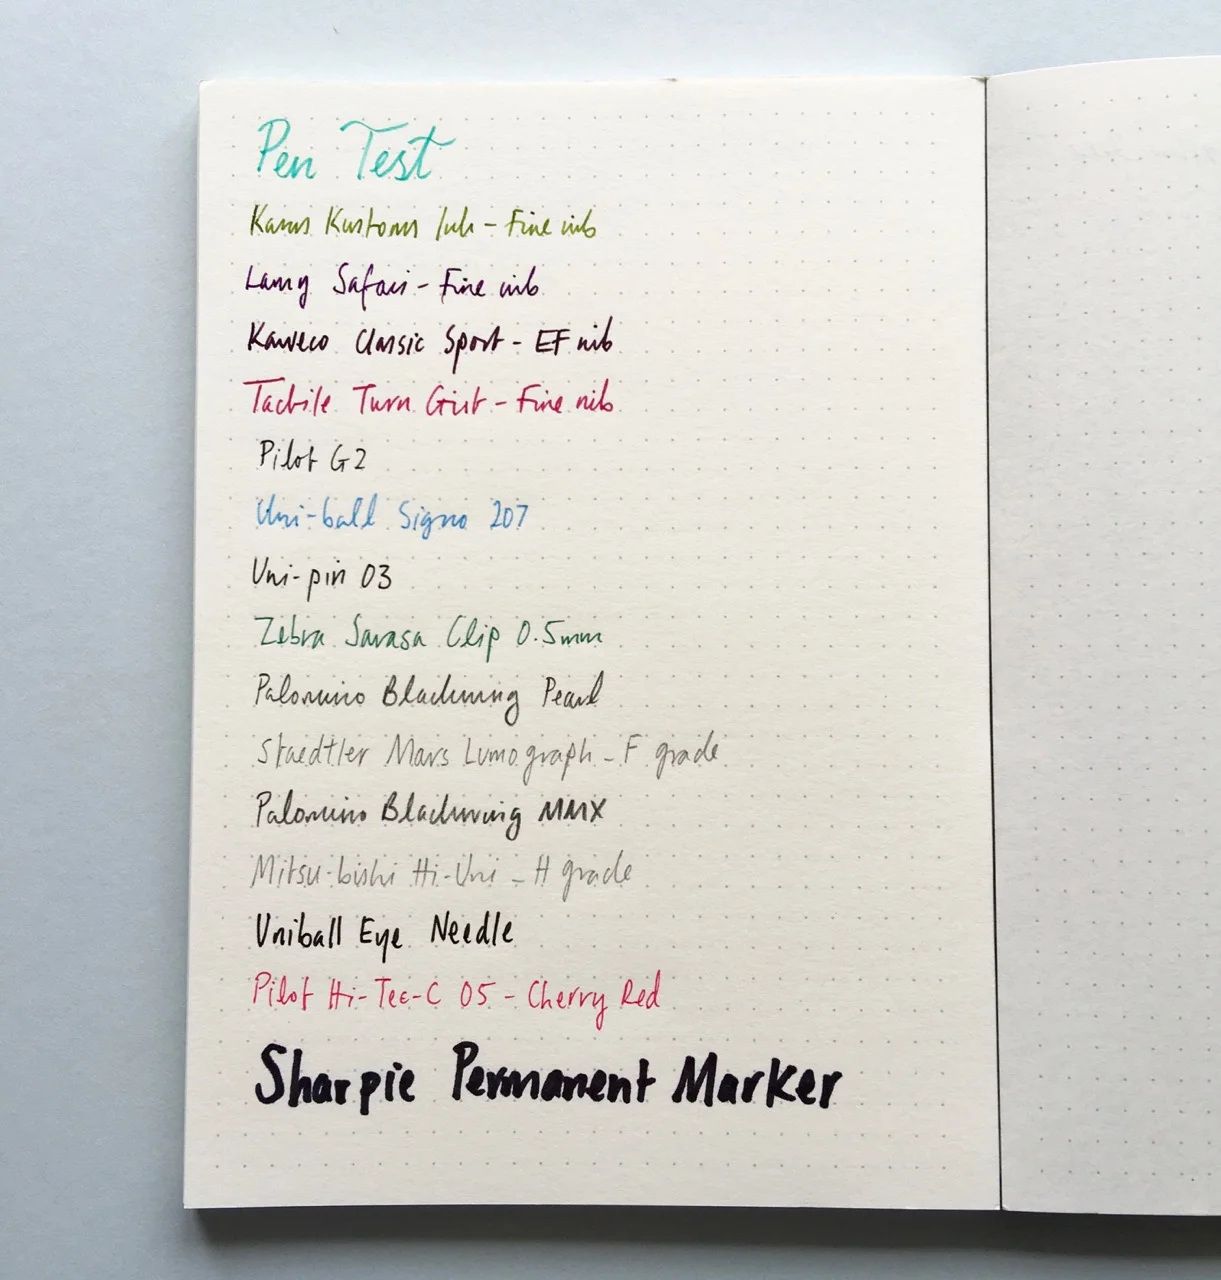 Pen Test
Karas Kustoms Ink - Fine nib
Lamy Safari - Fine nib
Kaweco Classic Sport - EF nib
Tactile Turn Gist - Fine nib
Pilot G2
Uni-ball Signo 207
Uni-pin 03
Zebra Sarasa Clip 0.5mm
Palomino Blackwing Pearl
Staedtler Mars Lumograph - F grade
Palomino Blackwing MMX
Mitsu-bishi Hi-Uni - H grade
Uniball Eye Needle
Pilot Hi-Tec-C 05 - Cherry Red
Sharpie Permanent Marker